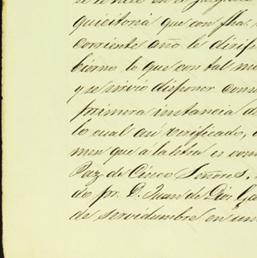 quisitoria que con fha.
corriente año le dirif
bierno lo que con tal m
y se sirvió disponer com
primera instancia d
lo cual asi verificado,
min que a la letra es com
Paz de Cinco Señores.
do pr. D. Juan de Dios Ga
de servidumbre en un